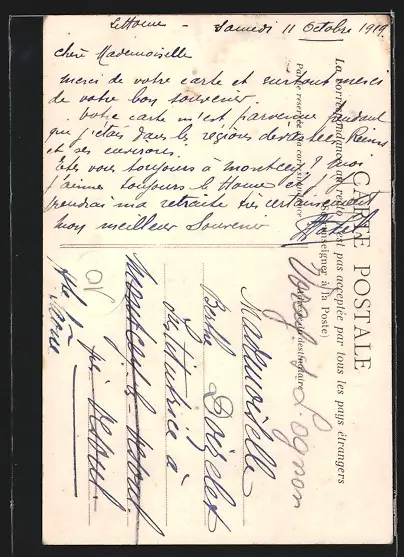 Le Havre - Samedi 11 Octobre 1919.
Chère Mademoiselle
merci de votre carte et surtout merci
de votre bon souvenir.
Votre carte m'est parvenue pendant
que j'étais dans les régions dévastées, Reims
et ses environs.
Etes vous toujours à Montcey? Moi
j'aime toujours le Havre et j'y
prendrai ma retraite très certainement
Mon meilleur Souvenir
CARTE POSTALE
La correspondance au recto n'est pas acceptée par tous les pays étrangers
(Se renseigner à la Poste)
Partie réservée à la correspondance
Mademoiselle
Berthe
Institutrice à
Montcey
par
Hte Saône